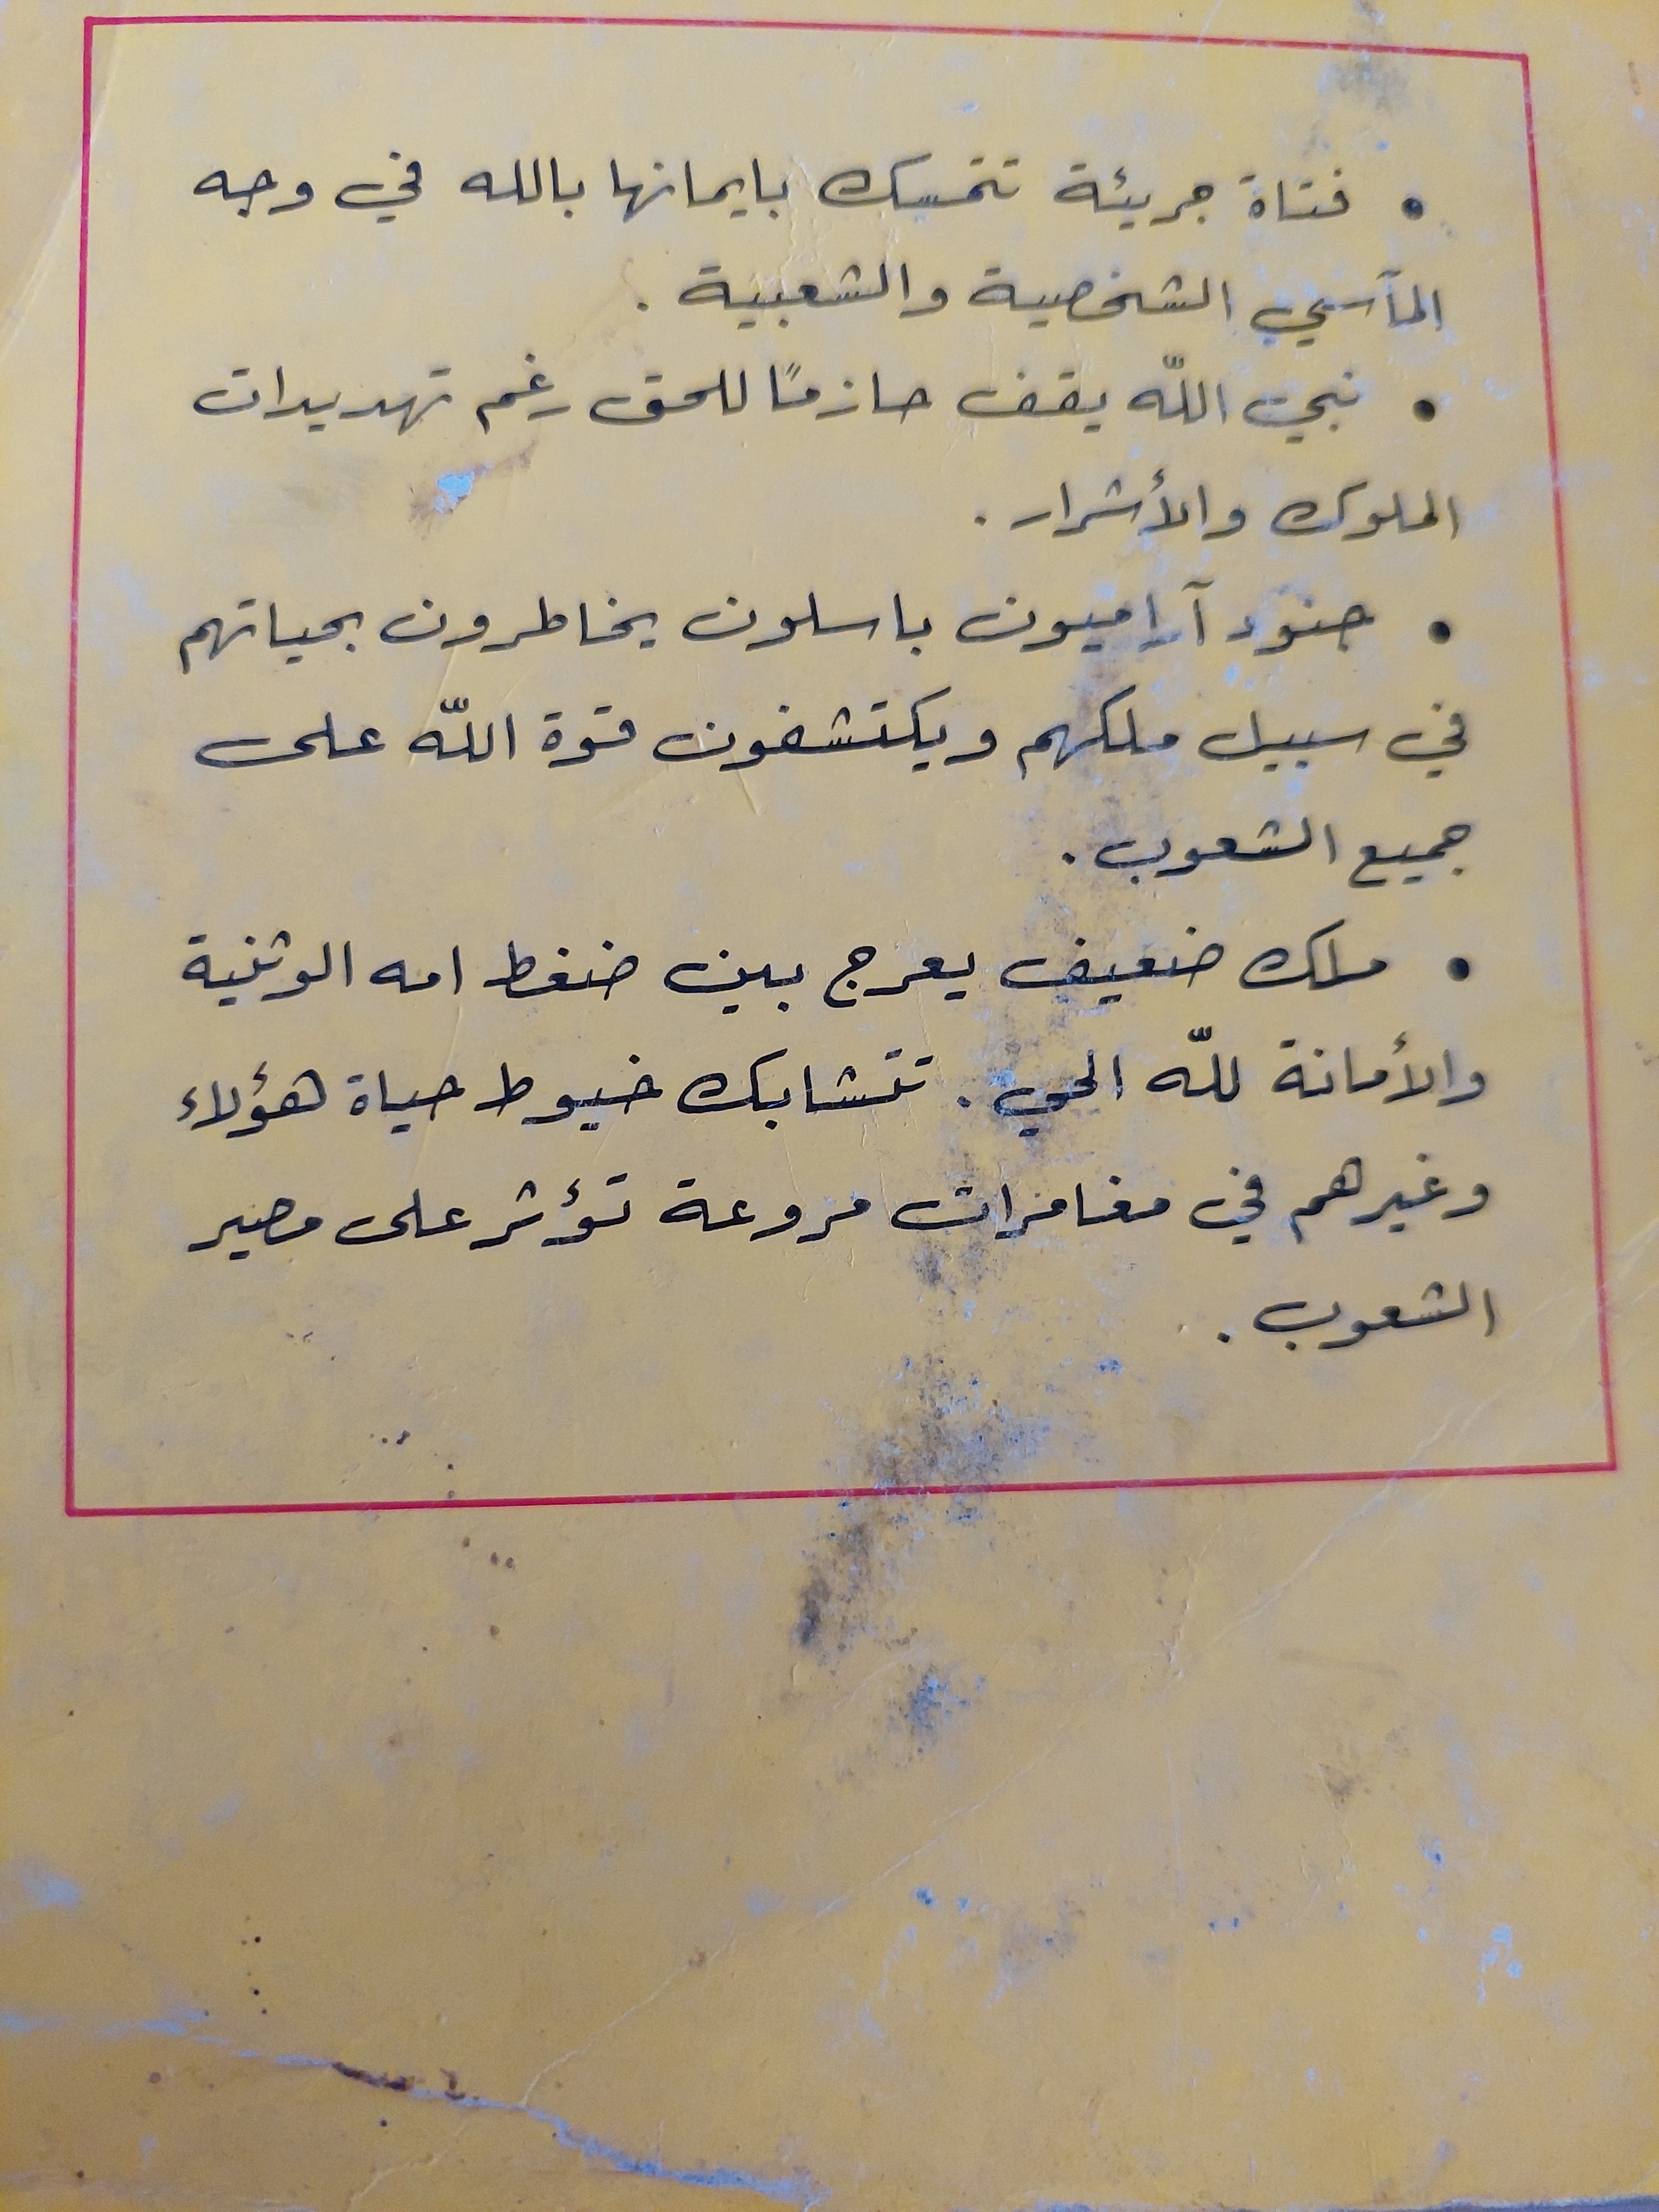 • فتاة جريئة تتمسك بايمانها بالله في وجه
المآسي الشخصية والشعبية .
• نبي اللّه يقف حازمًا للحق رغم تهديدات
الملوك والأشرار .
• جنود آراميون باسلون يخاطرون بحياتهم
في سبيل ملكهم ويكتشفون قوة اللّه على
جميع الشعوب .
• ملك ضعيف يعرج بين ضغط امه الوثنية
والأمانة للّه الحي . تتشابك خيوط حياة هؤلاء
وغيرهم في مغامرات مروعة تؤثر على مصير
الشعوب .